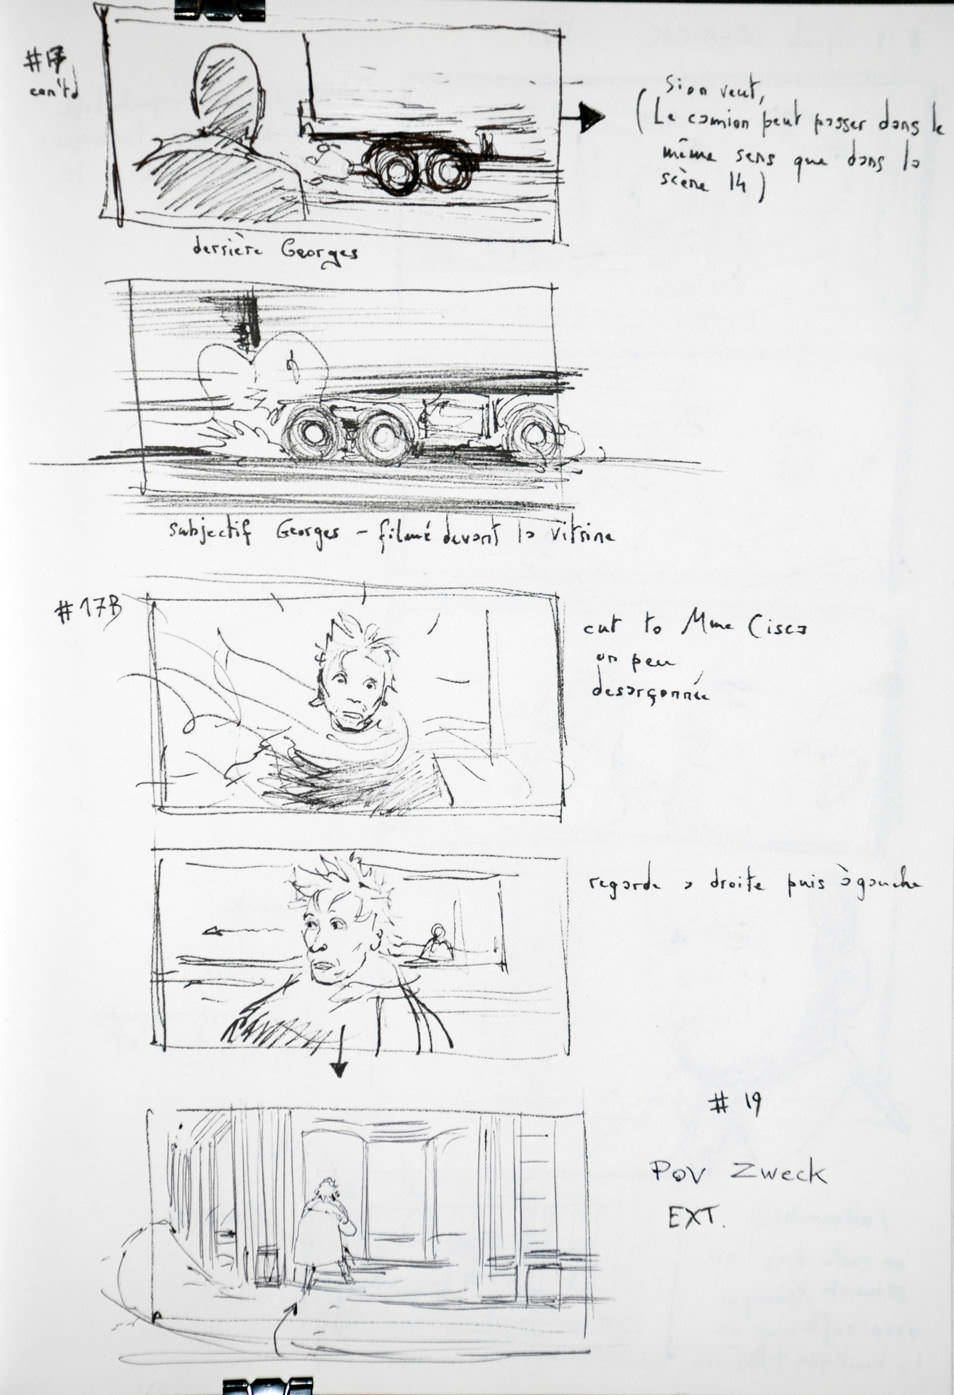 #17
con't'd
Si on veut,
(Le camion peut passer dans le
même sens que dans la
scène 14)
derrière Georges
subjectif Georges - filmé devant la vitrine
#17B
cut to Mme Cisca
un peu
desarçonnée
regarde a droite puis à gauche
# 19
POV Zweck
EXT.